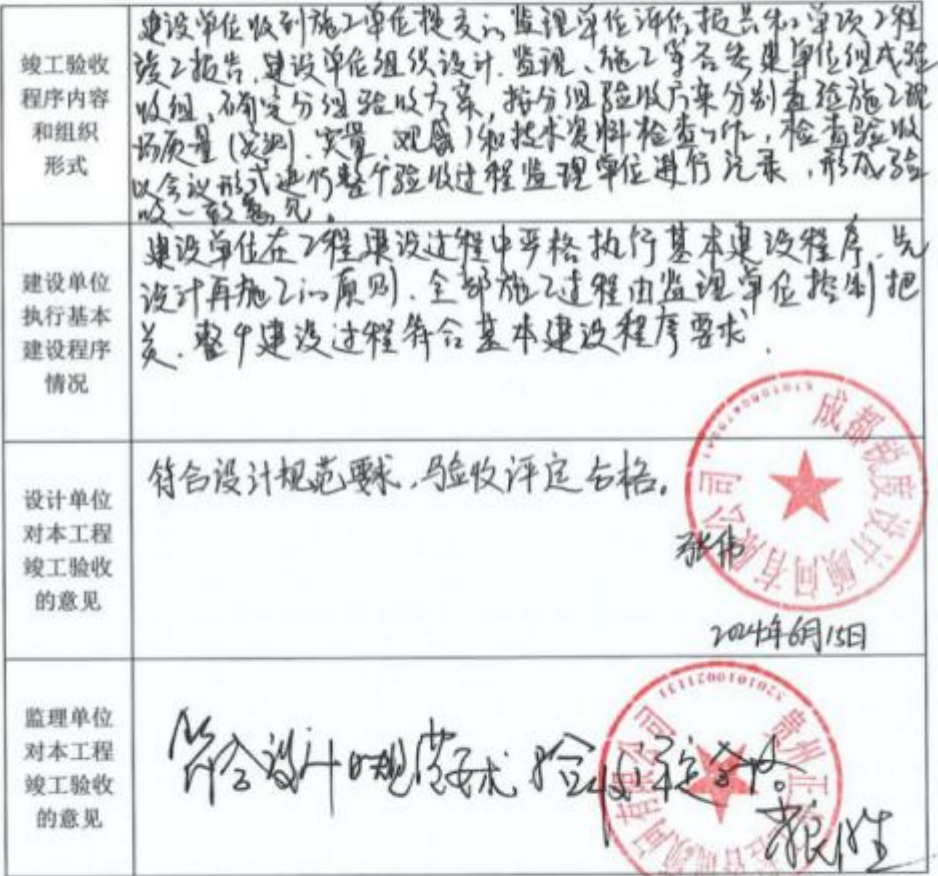 竣工验收
程序内容
和组织
形式
建设单位收到施工单位提交的监理单位评估报告和单项工程
竣工报告,建设单位组织设计、监理、施工等各参建单位组成验
收组,确定分组验收方案,按分组验收方案分别查验施工现
场质量(实测、实量、观感)和技术资料检查工作,检查验收
以会议形式进行整个验收过程监理单位进行记录,形成验
收一致意见。
建设单位
执行基本
建设程序
情况
建设单位在工程建设过程中严格执行基本建设程序,先
设计再施工的原则,全部施工过程由监理单位控制把
关,整个建设过程符合基本建设程序要求.
设计单位
对本工程
竣工验收
的意见
符合设计规范要求,验收评定合格。
成都锐度设计顾问有限公司
张伟
2024年6月15日
监理单位
对本工程
竣工验收
的意见
符合设计规范要求 验收评定合格。
5201010021131
贵州正
有限公司